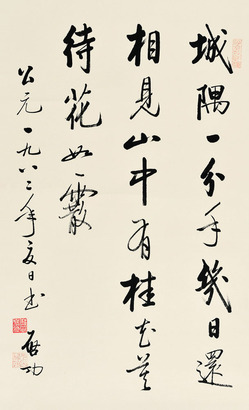 城隅一分手幾日還
相見山中有桂花莫
待花如霰
公元一九八二年夏日書 啟功